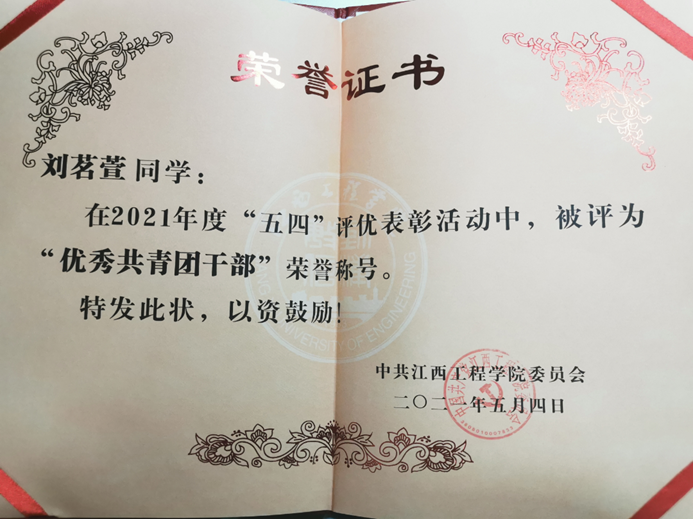 荣誉证书
刘茗萱 同学：
在2021年度“五四”评优表彰活动中，被评为
“优秀共青团干部”荣誉称号。
特发此状，以资鼓励！
中共江西工程学院委员会
二〇二一年五月四日
UNIVERSITY OF ENGINEERING